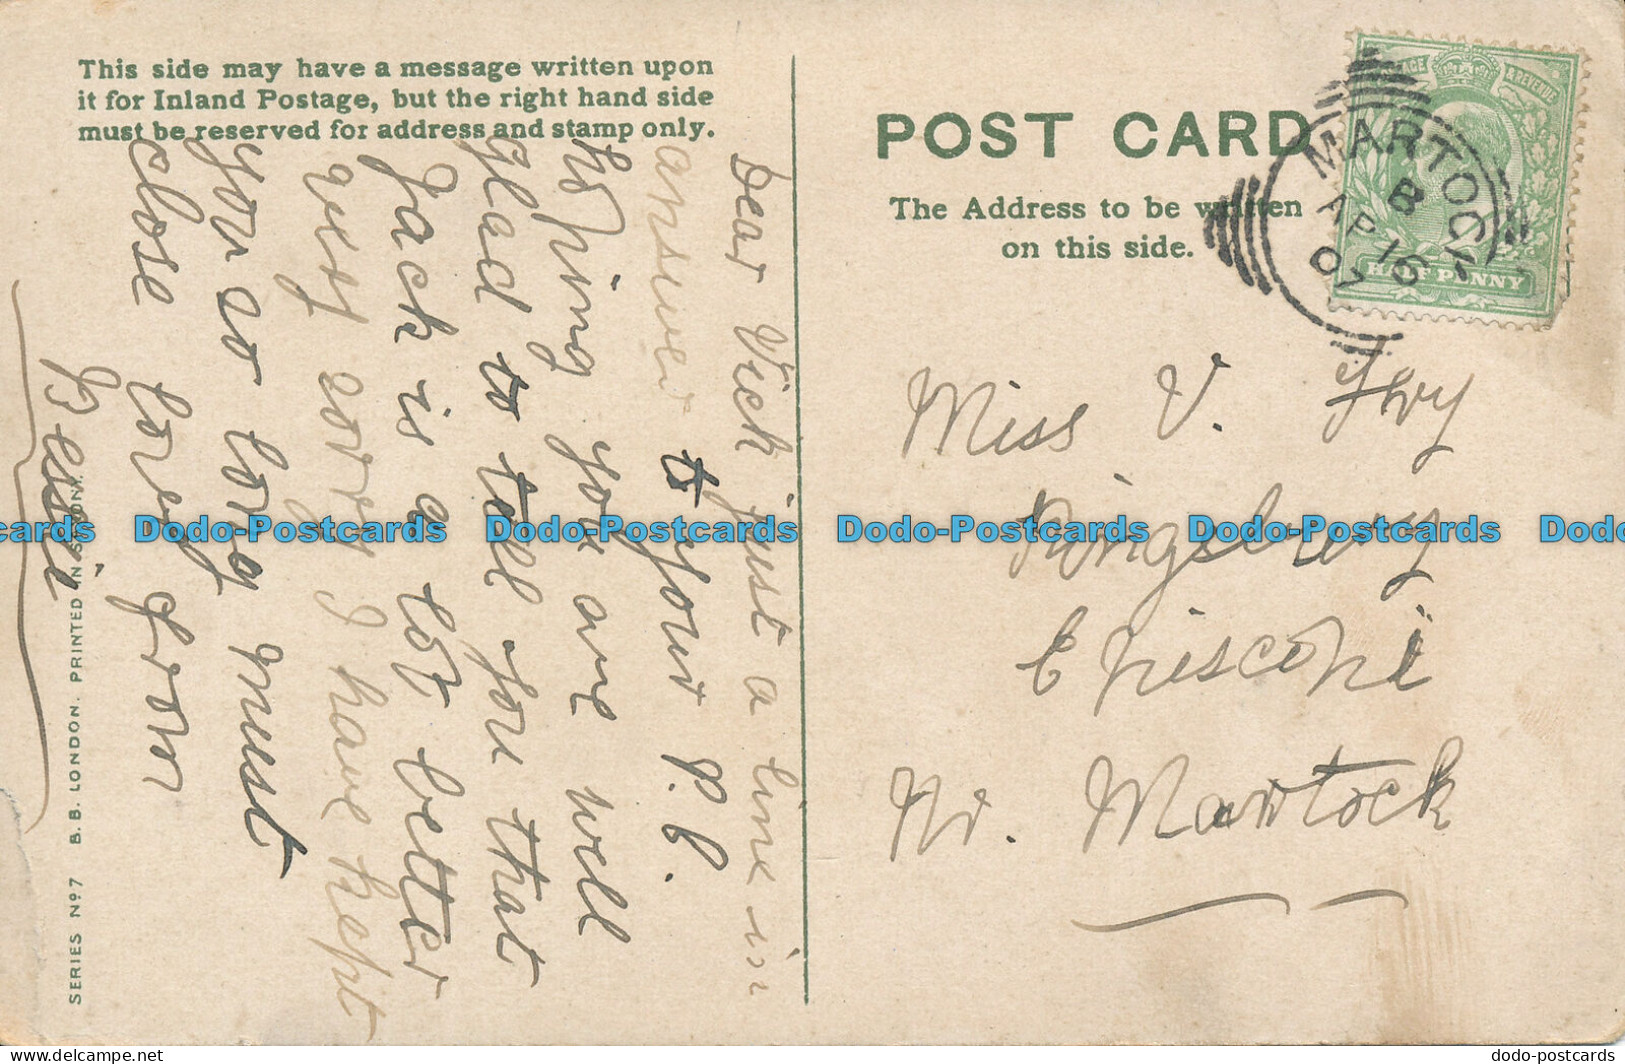 This side may have a message written upon
it for Inland Postage, but the right hand side
must be reserved for address and stamp only.
Dear Vick just a line in
answer to your P.C.
hoping you are well
glad to tell you that
Jack is a lot better
very sorry I have kept
you so long must
close love from
Bessi
SERIES Nº 7 B.B. LONDON. PRINTED IN SAXONY.
POST CARD
The Address to be written
on this side.
POSTAGE & REVENUE
HALF PENNY
MARTOCK
B
AP 10
07
Miss V. Ivy
Kingsbury
Episcopi
Nr. Martock
Dodo-Postcards Dodo-Postcards Dodo-Postcards Dodo-Postcards Dodo-Postcards
www.delcampe.net
dodo-postcards